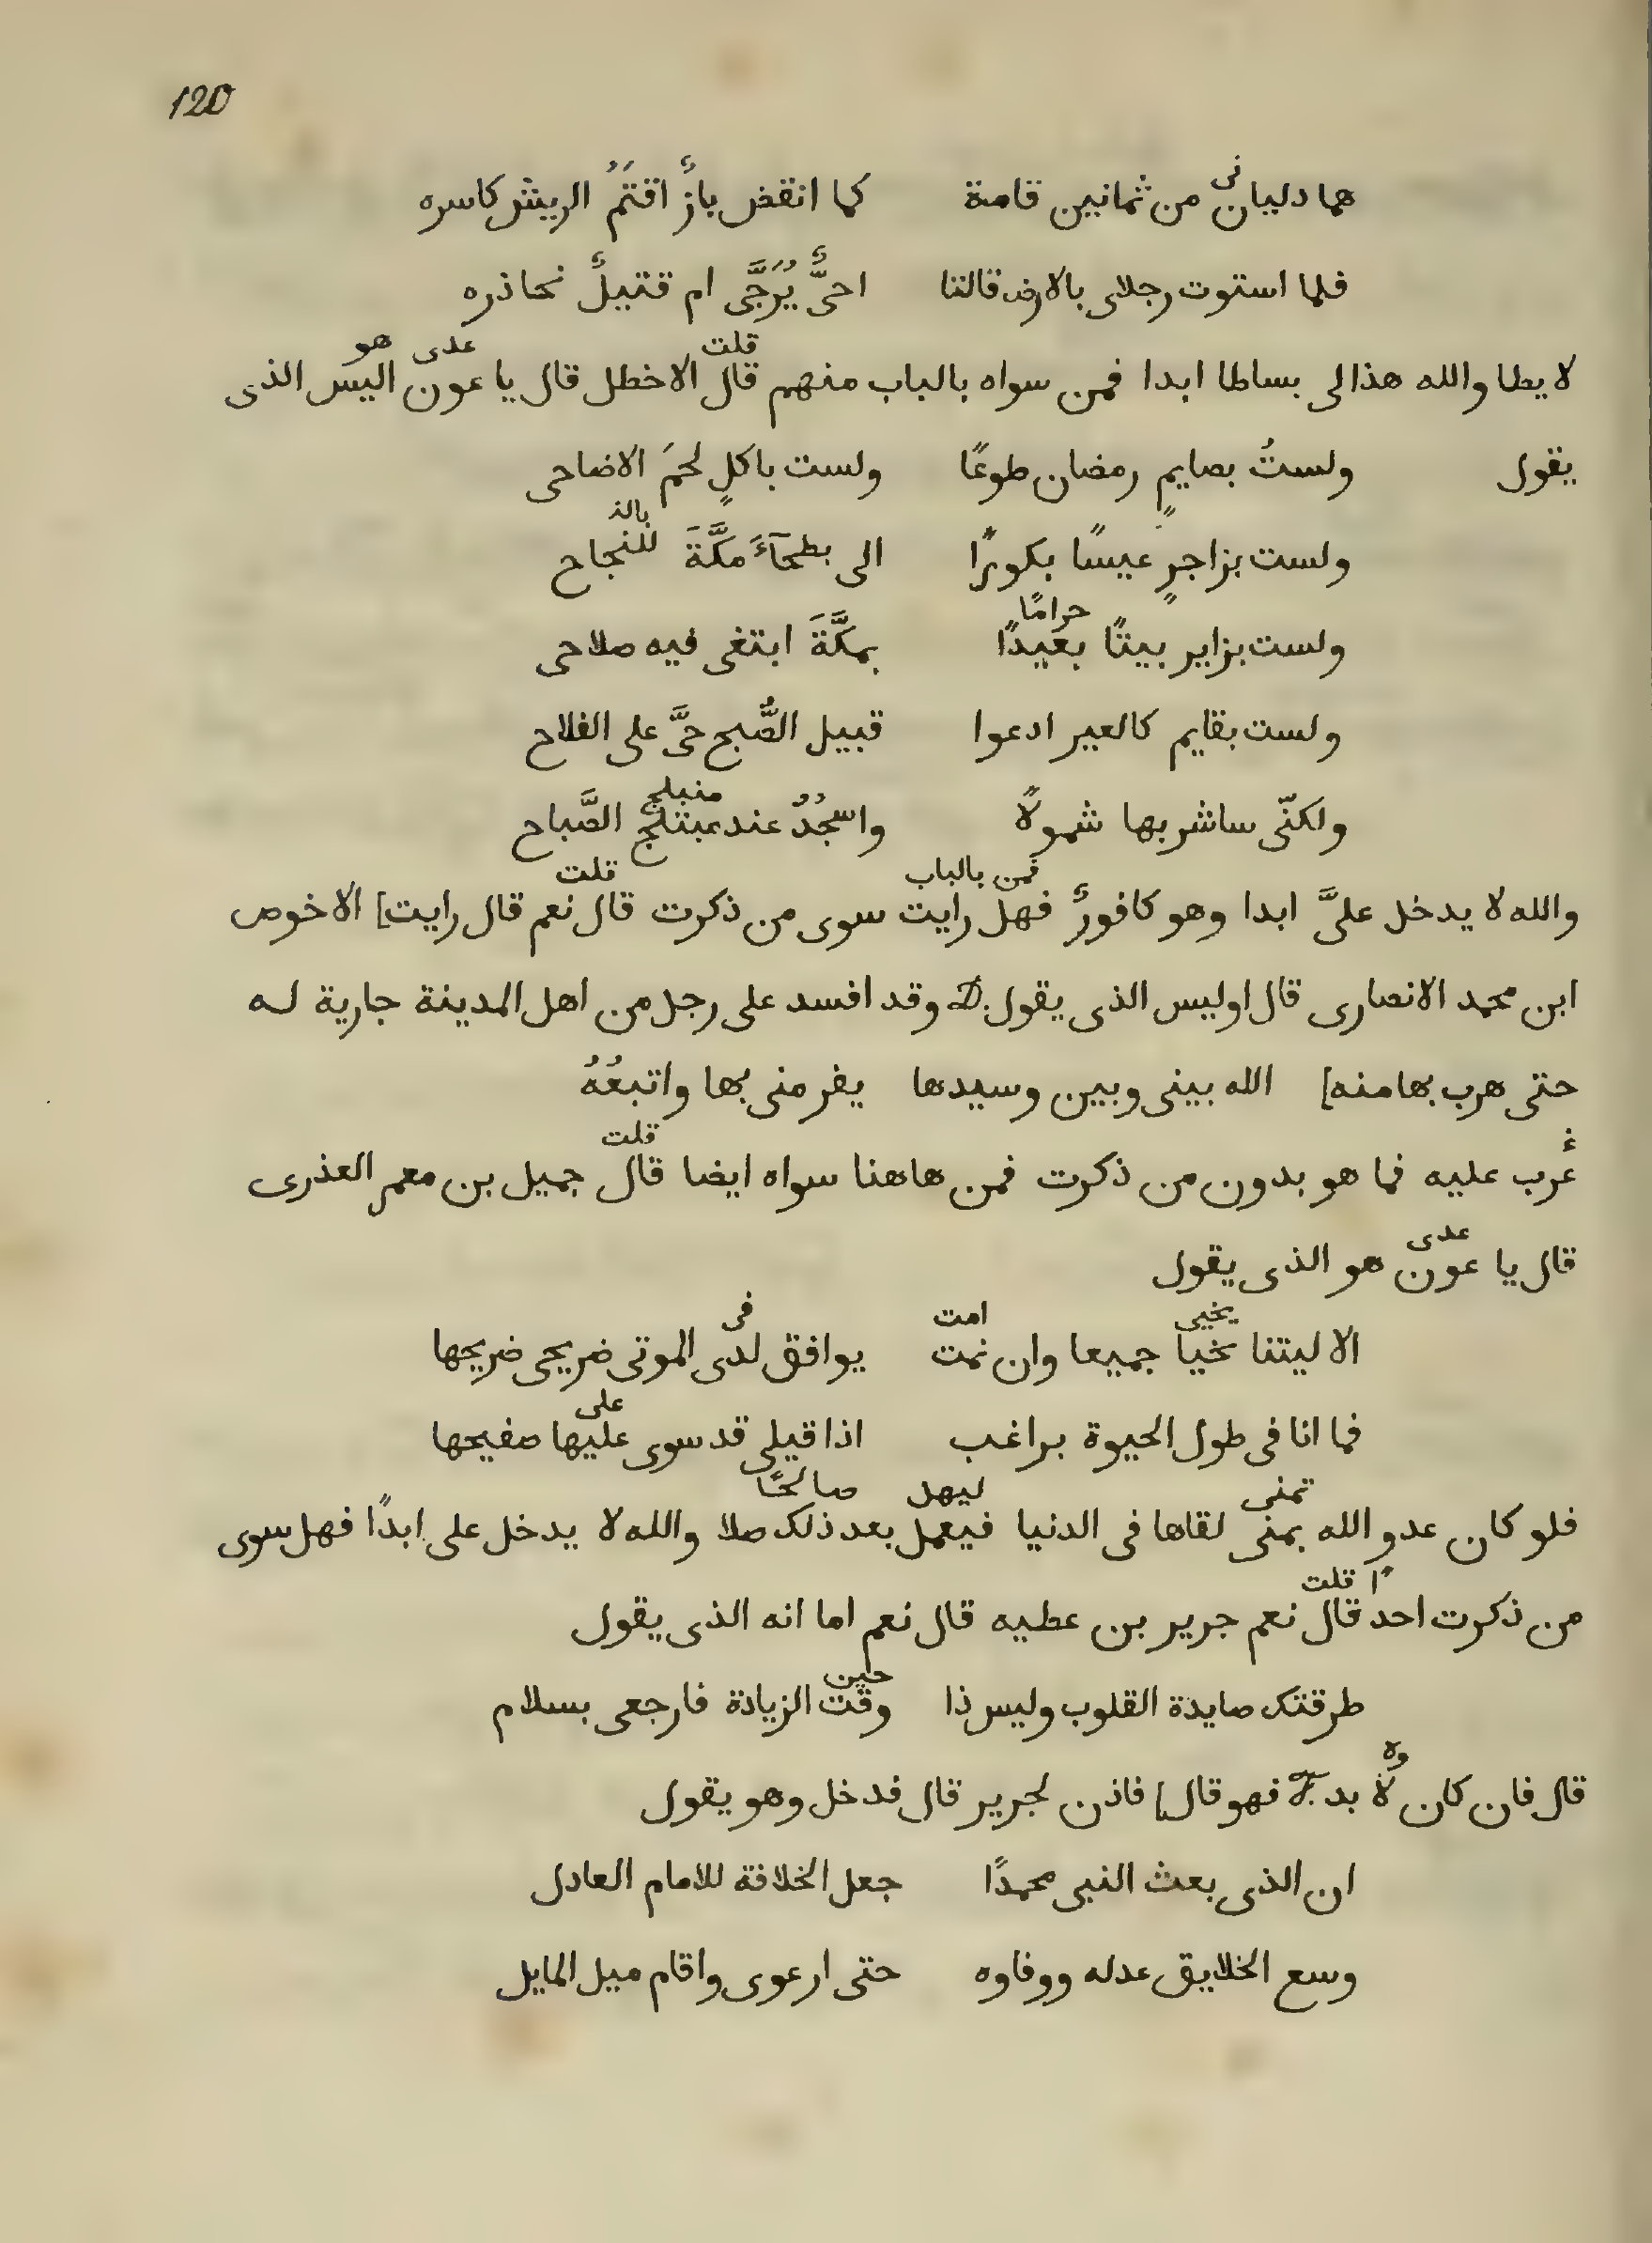 120
هما دليانى من ثمانين قامة كما انقض بازٌ اقتَمُ الريش كاسره
فلما استوت رجلاى بالارض قالتا احىٌّ يُرَجَّى ام قتيلٌ نحاذره
قلت عدى هو
لا يطا والله هذا لى بساطا ابدا فمن سواه بالباب منهم قال الاخطل قال يا عون اليس الذى
يقول ولستُ بصايمٍ رمضان طوعًا ولست باكلٍ لحمَ الاضاحى
بالذ
ولست بزاجرٍ عيسًا بكورًا الى بطحآءَ مكَّةَ للنجاح
حرامًا
ولست بزاير بيتًا بعيدًا بمكَّةَ ابتغى فيه صلاحى
ولست بقايم كالعير ادعوا قبيل الصُّبح حىَّ على الفلاح
منبلج
ولكنّى ساشربها شمولًا واسجُدُ عند مبتلج الصَّباح
فمن بالباب قلت
والله لا يدخل علىَّ ابدا وهو كافورٌ فهل رايت سوى من ذكرت قال نعم قال رايت] الاخوص
ابن محمد الانصارى قال اوليس الذى يقول D. وقد افسد على رجل من اهل المدينة جارية له
حتى هرب بها منه] الله بينى وبين وسيدها يفر منى بها واتبعُهُ
قلت
غُرب عليه فما هو بدون من ذكرت فمن هاهنا سواه ايضا قال جميل بن معمر العذرى
عدى
قال يا عون هو الذى يقول
يحيى امت فى
الا ليتنا نحيا جميعا وان نمت يوافق لدى الموتى ضريحى ضريحها
على
فما انا فى طول الحيوة براغب اذا قيل قد سوى عليها صفيحها
تمنى ليهل صالحًا
فلو كان عدو الله بمنى لقاها فى الدنيا فيعمل بعد ذلك صلا والله لا يدخل على ابدًا فهل سوى
ًا قلت
من ذكرت احد قال نعم جرير بن عطيه قال نعم اما انه الذى يقول
حين
طرقتك صايدة القلوب وليس ذا وقت الزيادة فارجعى بسلام
ولا
قال فان كان لا بد فهو قال] فاذن لجرير قال فدخل وهو يقول
ان الذى بعث النبى محمدًا جعل الخلافة للامام العادل
وسع الخلايق عدله ووفاوه حتى ارعوى واقام ميل المايل